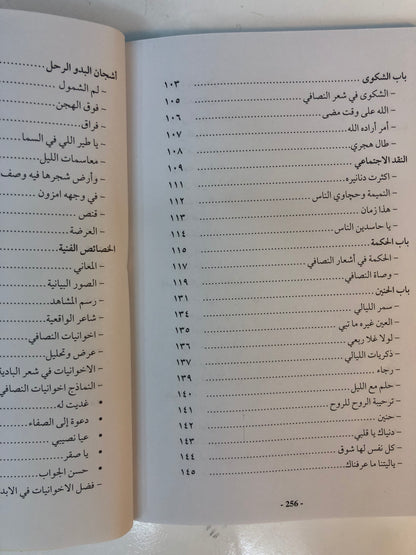 باب الشكوى ........ ١٠٣
– الشكوى في شعر النصافي ........ ١٠٥
– الله على وقت مضى ........ ١٠٦
– أمر أراده الله ........ ١٠٧
– طال هجري ........ ١٠٨
النقد الاجتماعي ........ ١٠٩
– اكثرت دنانيره ........ ١١١
– النميمة وحچاوي الناس ........ ١١٢
– هذا زمان ........ ١١٣
– يا حاسدين الناس ........ ١١٤
باب الحكمة ........ ١١٥
– الحكمة في أشعار النصافي ........ ١١٧
– وصاة النصافي ........ ١١٩
باب الحنين ........ ١٣١
– سمر الليالي ........ ١٣٤
– العين غيره ما تبي ........ ١٣٥
– لولا غلا ربعي ........ ١٣٦
– ذكريات الليالي ........ ١٣٧
– رجاء ........ ١٣٩
– حلم مع الليل ........ ١٤٠
– ترحيبة الروح للروح ........ ١٤١
– حنين ........ ١٤٢
– دنياك يا قلبي ........ ١٤٣
– كل نفس لها شوق ........ ١٤٤
– ياليتنا ما عرفناك ........ ١٤٥
- 256 -
أشجان البدو الرحل ........
– لم الشمول ........
– فوق الهجن ........
– فراق ........
– يا طير اللي في السما ........
– معاسمات الليل ........
– وأرض شجرها فيه وصف
– في وجهه امزون ........
– قنص ........
– العرضة ........
الخصائص الفنية ........
– المعاني ........
– الصور البيانية ........
– رسم المشاهد ........
– شاعر الواقعية ........
– اخوانيات النصافي ........
– عرض وتحليل ........
– الاخوانيات في شعر البادية
– النماذج اخوانيات النصافي
• غديت له ........
• دعوة إلى الصفاء ........
• عبا نصيبي ........
• يا صقر ........
• حسن الجواب ........
– فضل الاخوانيات في الابد